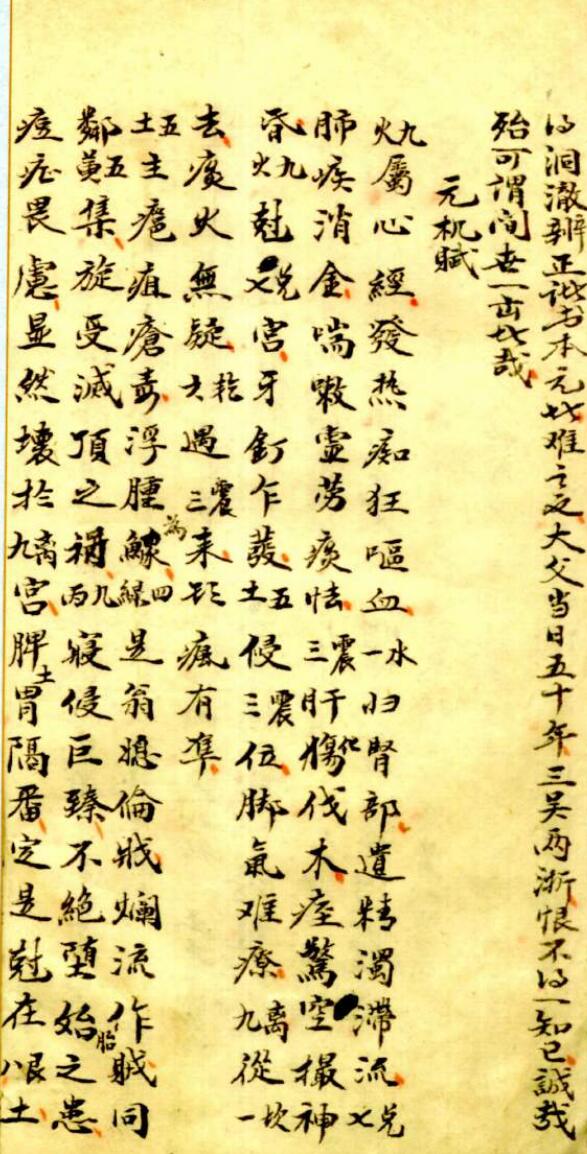 洞澈辨正諸书本元此难言之大父当日五十年三吴两浙恨不得一知已誠哉
殆可谓间世一出此哉
元机赋
九火屬心經發热痴狂嘔血一水归腎部遺精濁滯流七兑
肺疾消金喘嗽虚劳痰怯三震肝傷化伐木痊驚空撮神
昏九火尅七兑宫牙釘乍發五土侵三震位脚氣难療九離從一坎
去痰火無疑六乾過三震為来瘋有凖
五土主瘡疽瘡毒浮腫鰥四緑是翁媳倫戕爛流作贼同
鄰五黄集旋受滅頂之禍九丙寝侵巨臻不絕堕始胎之患
痘症畏慮显然壞於九離宫脾土胃隔番定是尅在八艮土